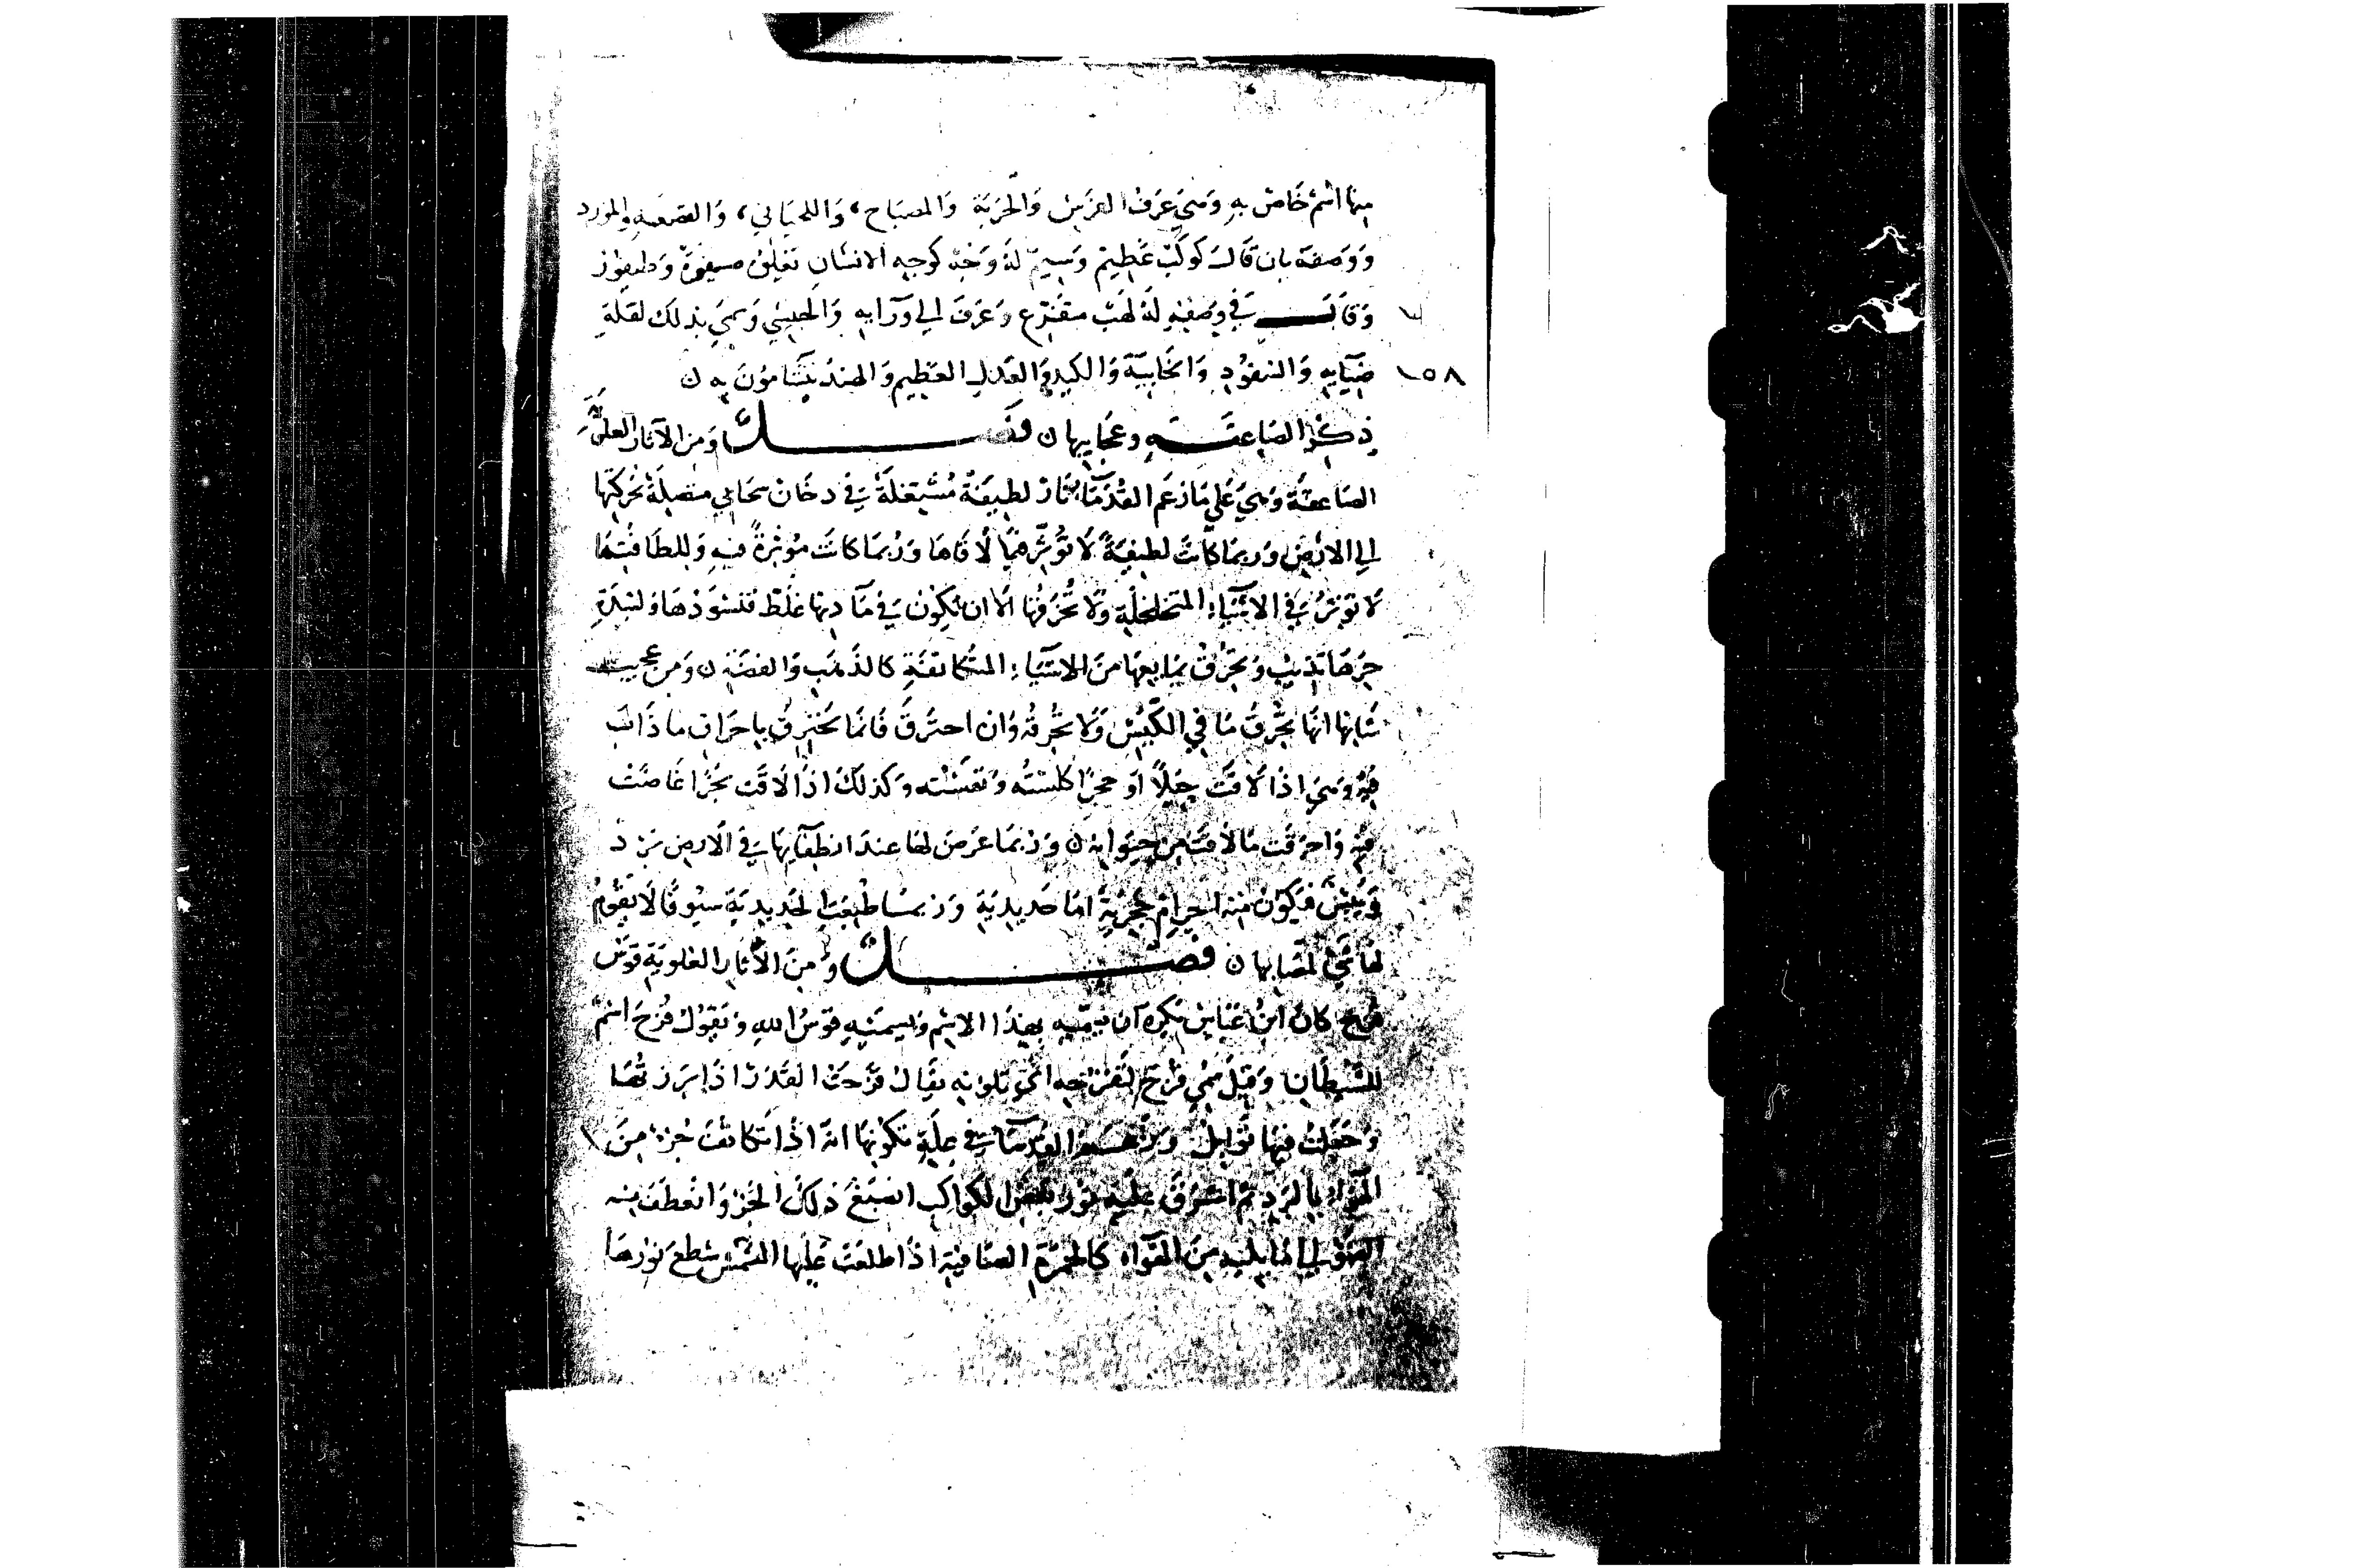 منها اسم خاص به وهي عرف الفرس والحربة والمصباح، واللحياني، والقصعه والمورد
ووصفه بان قال كوكب عظيم وسيم له وجه كوجه الانسان تعلوه صفرة
وقال في وصفه له لهب متفرع وعرف الي ورايه والحبشي وسمي بذلك لقلة
١٥٨
ضيايه والسفود والخابية والكيد والعظيم والهند يتشامون به ن
ذكر الصاعقه وعجايبها ن فصل ومن الآثار العلوية
الصاعقة وهي علي ما زعم القدمآء نار لطيفة مشتعلة في دخان سحابي متصلة بحركتها
الي الارض وربما كانت لطيفة لا تؤثر فيما لاقاها وربما كانت موثرة فيه وللطافتها
لا توثر في الاشيآء المتخلخلة ولا تحرقها الا ان يكون في مآدتها غلظ فتسودها ولشدة
حرها تذيب وتحرق ما من الاشيآء المتكاثفة كالذهب والفضة ن ومن عجيب
شانها انها تحرق ما في الكيس ولا تحرقه وان احترق فانما يحترق باحراق ما ذاب
فيه وهي اذا لاقت جبلاً او حجرًا كلسته ونفشته وكذلك اذا لاقت بحرًا غاصت
فيه واحرقت ما لاقت من حيوانه ن وربما عرض لها عند انطفآيها في الارض برد
ويبس فيكون منه اجرام حجرية اما حديدية وربما طبعت الحديدية سيوفًا لا يقوم
لها شي لمضايها ن فصل ومن الآثار العلوية قوس
قزح كان ابن عباس يكره ان يسميه بهذا الاسم ويسميه قوس الله ويقول قزح اسم
للشيطان وقيل سمي قزح لتقزحه اي تلونه يقال قزحت القدر اذا بزرتها
وجعلت فيها توابل القدمآء في علة تكونها انه اذا تكاثف جزء من
الهوآء بالبرد ثم اشرق عليه نور بعض الكواكب انصبغ ذلك الجزء وانعطف منه
الضوء الي ما يليه من الهوآء كالحمرة الصافية اذا طلعت عليها الشمس سطع نورها